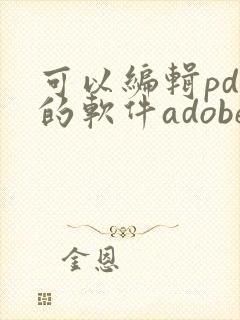 可以編輯pd
的軟件adobe
金恩